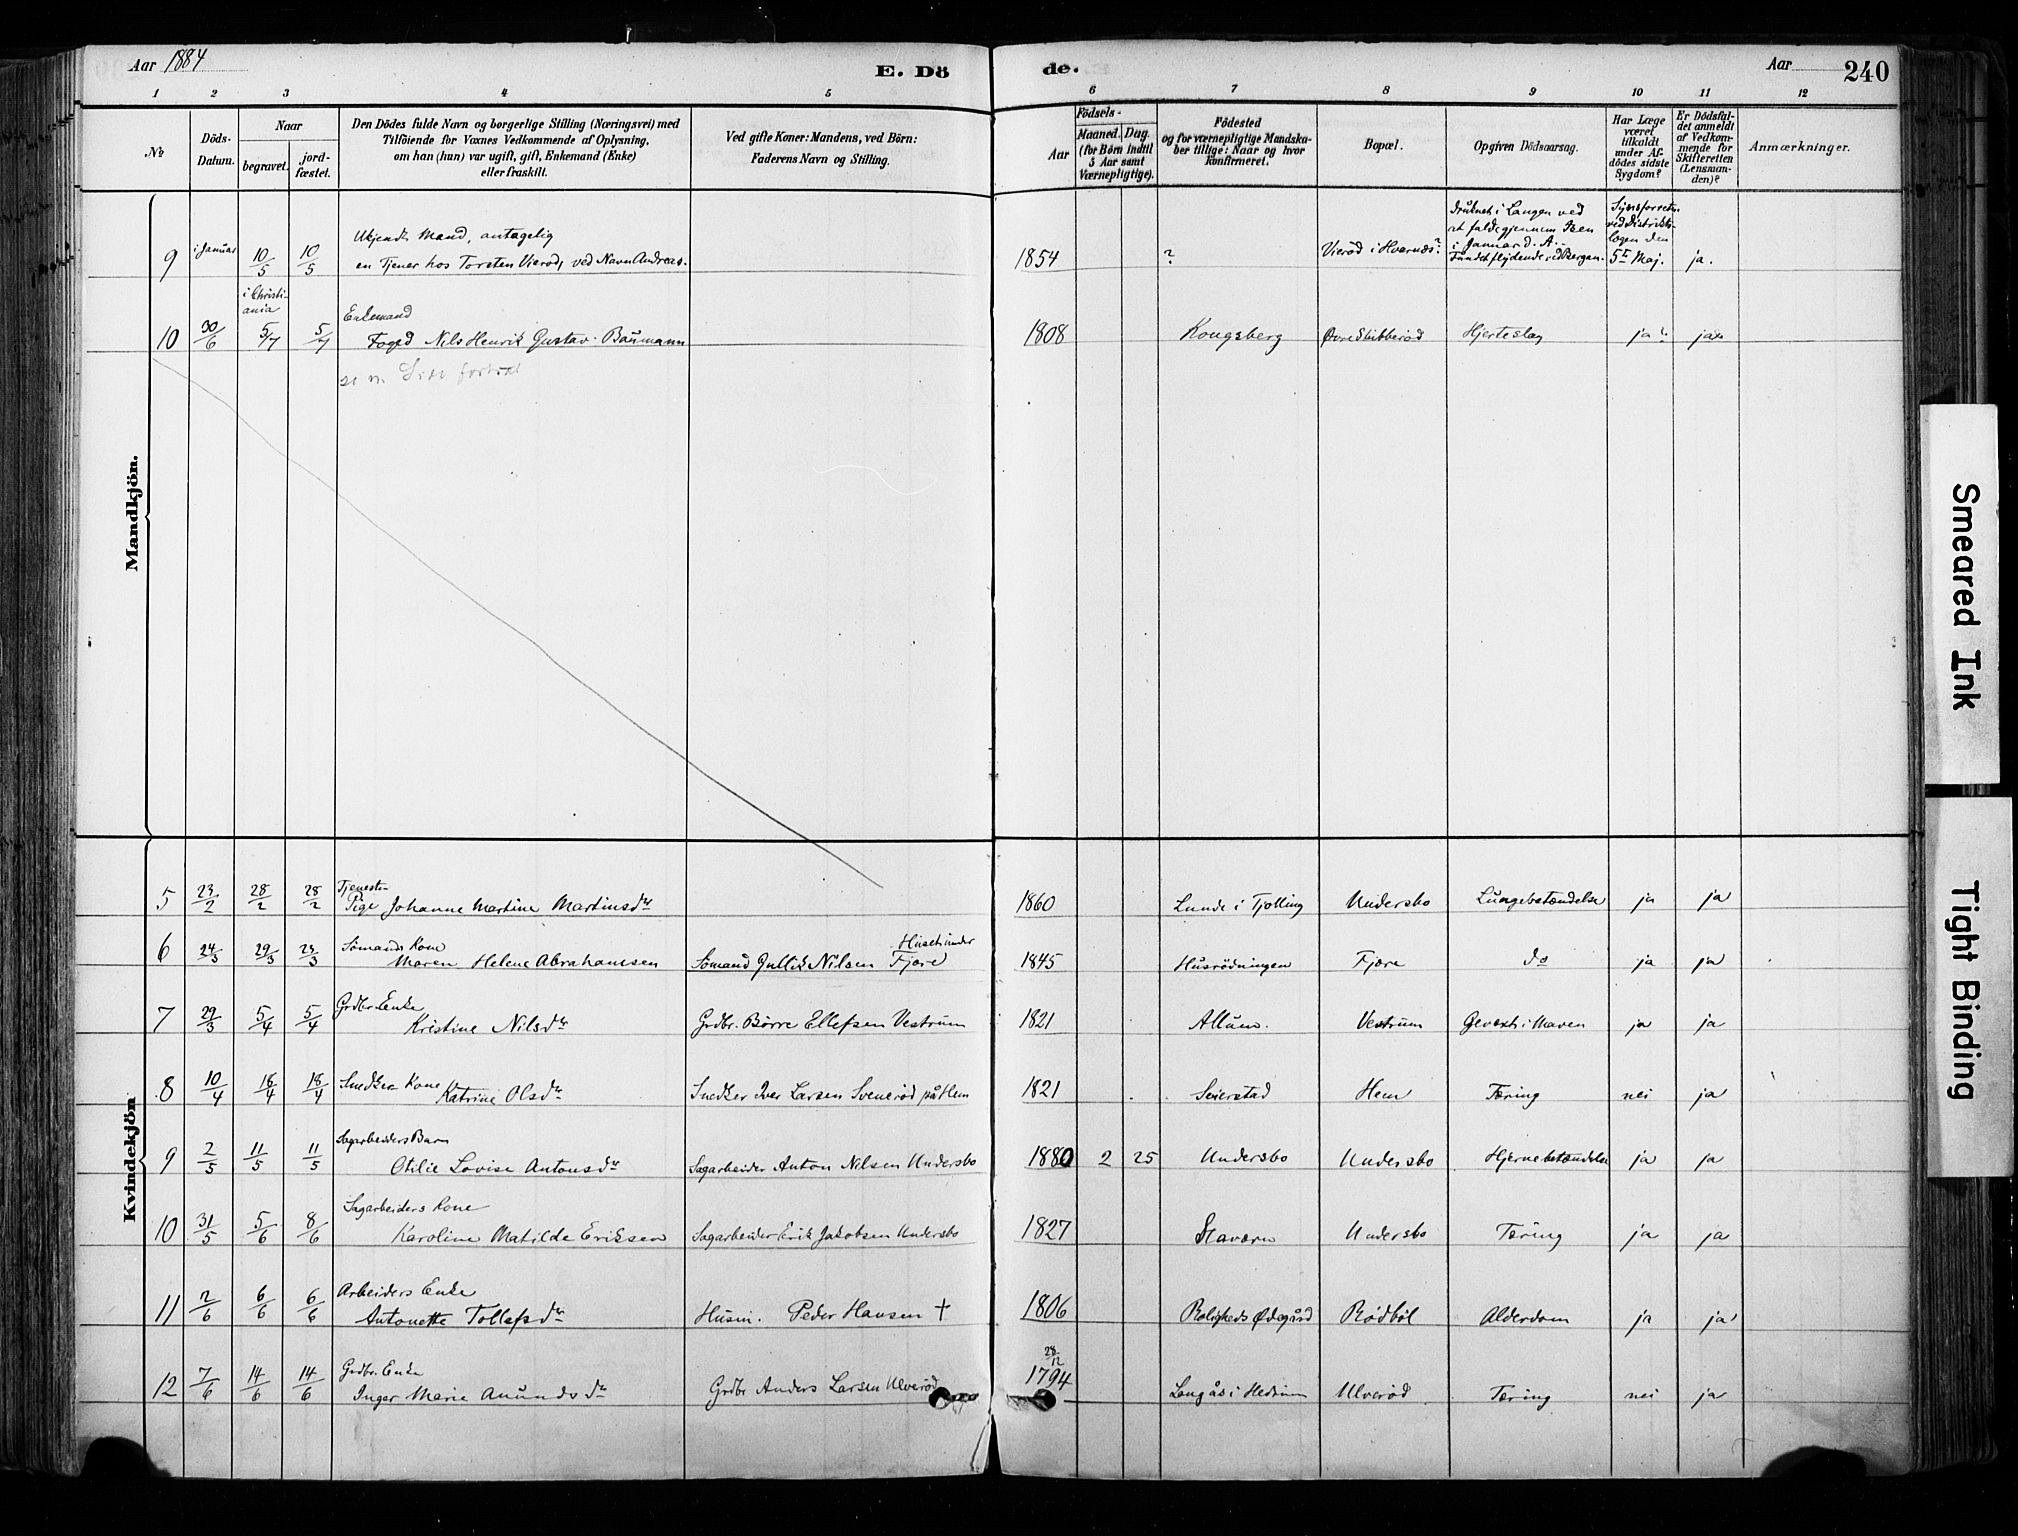 Aar 1884
E. Dö
de.
Aar
240
1 2 3 4 5 6 7 8 9 10 11 12
№
Döds-
Datum.
Naar
begravet.
jord-
fæstet.
Den Dödes fulde Navn og borgerlige Stilling (Næringsvei) med
Tilföiende for Voxnes Vedkommende af Oplysning,
om han (hun) var ugift, gift, Enkemand (Enke)
eller fraskilt.
Ved gifte Koner: Mandens, ved Börn:
Faderens Navn og Stilling.
Födsels-
Aar
Maaned. Dag.
(for Börn indtil
5 Aar samt
Værnepligtige).
Födested
og for værnepligtige Mandska-
ber tillige: Naar og hvor
konfirmeret.
Bopæl.
Opgiven Dödsaarsag.
Har Læge
været
tilkaldt
under Af-
dödes sidste
Sygdom?
Er Dödsfal-
det anmeldt
af Vedkom-
mende for
Skifteretten
(Lensman-
den)?
Anmærkninger.
Mandkjön.
Ukjendt Mand, antagelig
9 i Januar 10/5 10/5 en Tjener hos Torsten Vierød, ved Navn Andreas. 1854 ? Vierød i Hvarnæs? ja.
druknet i Langen ved
at falde gjennem Isen
i Januar d. A.
Fundet flydende ved Bergan.
Synsforretn.
ved Distrikts-
lægen den
5te Maj.
i Christi-
ania
Enkemand
10 30/6 5/7 5/7 Foged Nils Henrik Gustav Baumann 1808 Kongsberg Øvre Skibberød Hjerteslag ja ja
Kvindekjön
Tjeneste-
5 23/2 28/2 28/2 Pige Johanne Martine Martinsdtr 1860 Lunde i Tjølling Undersbo Lungebetændelse ja ja
Sømands Kone Huset under
6 24/3 29/3 29/3 Maren Helene Abrahamsen Sømand Gullik Nilsen Fjære 1845 Husrødningen Fjære do ja ja
Grdbr. Enke
7 29/3 5/4 5/4 Kristine Nilsdtr Grdbr. Børre Ellefsen Vestrum 1821 Allum. Vestrum Gevext i Maven ja ja
Snedker Kone
8 10/4 18/4 18/4 Katrine Olsdtr Snedker Iver Larsen Svenerød på Hem 1821 Seierstad Hem Tæring nei ja
Sagarbeiders Barn
9 2/5 11/5 11/5 Otilie Lovise Antonsdtr Sagarbeider Anton Nilsen Undersbo 1880 2 25 Undersbo Undersbo Hjernebetændelse ja ja
Sagarbeiders Kone
10 31/5 5/6 8/6 Karoline Matilde Eriksen Sagarbeider Erik Jakobsen Undersbo 1827 Stavern Undersbo Tæring ja ja
Arbeiders Enke
11 2/6 6/6 6/6 Antonette Tollefsdtr Husm. Peder Hansen † 1806 Roligheds Ødegård Rødbøl Alderdom ja ja
Grdbr. Enke 28/12
12 7/6 14/6 14/6 Inger Marie Anundsdtr Grdbr Anders Larsen Ulverød 1794 Langås i Hedrum Ulverød Tæring nei ja
Smeared Ink
Tight Binding